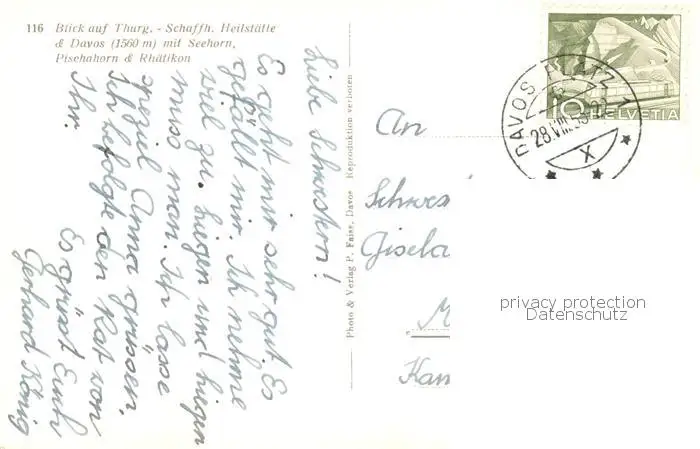 116 Blick auf Thurg. - Schaffh. Heilstätte
& Davos (1560 m) mit Seehorn,
Pischahorn & Rhätikon
Liebe Schwestern!
Es geht mir sehr gut. Es
gefällt mir. Ich nehme
viel zu. Liegen und liegen
muss man. Ich lasse
speziel Anna grüssen,
Ich befolgte den Rat von
Ihr.
Es grüsst Euch
Gerhard König
Photo & Verlag P. Faiss, Davos Reproduktion verboten
An
Schwes
Gisela
M
Kan
DAVOS PLATZ 1
28.VIII.
X
10 HELVETIA
privacy protection
Datenschutz